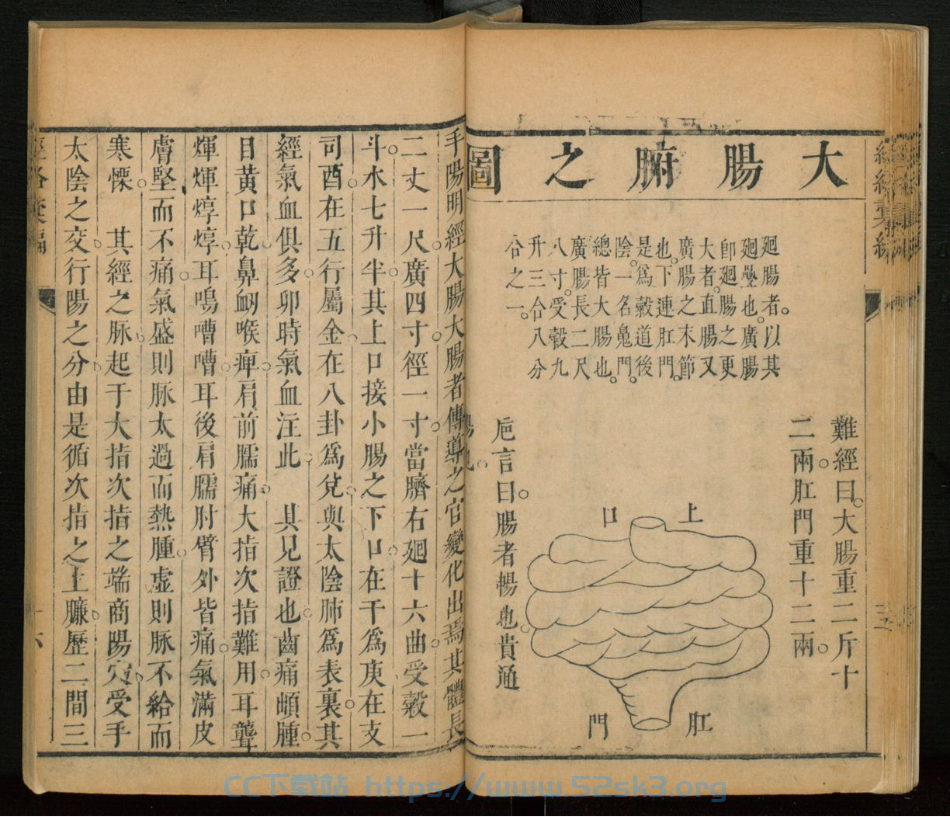 大腸腑之圖
難經曰。大腸重二斤十
二兩。肛門重十二兩。
廻腸者。以其
廻疊也。廣腸
卽廻腸之更
大者。直腸又
廣腸之末節
也。下連肛門。
是爲穀道後
陰。一名鬼門。
總皆大腸也。
廣腸長二尺
八寸。受穀九
升三合八分
合之一。
上口
肛門
巵言曰。腸者暢也。貴通
手陽明經大腸。大腸者傳導之官。變化出焉。其體長
二丈一尺。廣四寸。徑一寸。當臍右廻十六曲。受穀一
斗。水七升半。其上口接小腸之下口。在干爲庚。在支
司酉。在五行屬金。在八卦爲兌。與太陰肺爲表裏。其
經氣血俱多。卯時氣血注此。　其見證也。齒痛䪼腫。
目黃口乾。鼻衂喉痺。肩前臑痛。大指次指難用。耳聾
煇煇焞焞。耳鳴嘈嘈。耳後肩臑肘臂外皆痛。氣滿皮
膚堅而不痛。氣盛則脉太過而熱腫。虛則脉不給而
寒慄。　其經之脉。起于大指次指之端商陽穴。受手
太陰之交。行陽之分。由是循次指之上廉。歷二間三
CC下载站 https://www.52sk3.org